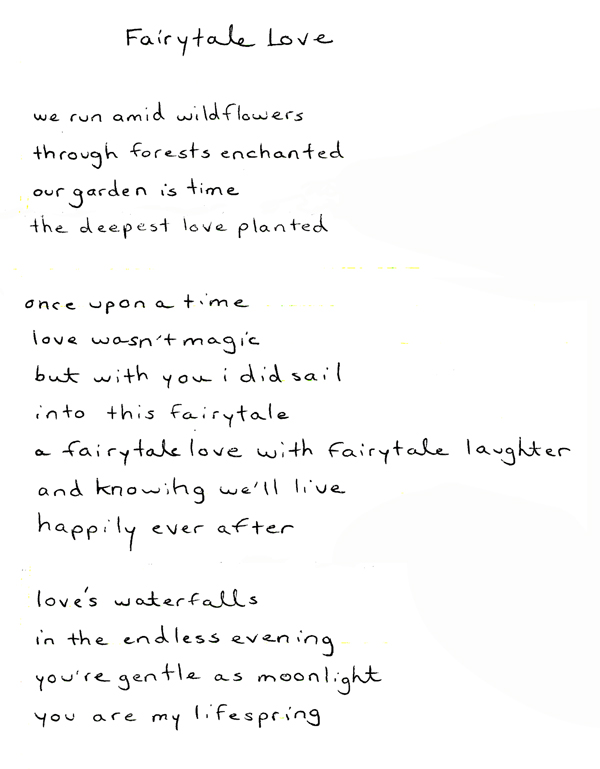 Fairytale Love
we run amid wildflowers
through forests enchanted
our garden is time
the deepest love planted
once upon a time
love wasn't magic
but with you i did sail
into this fairytale
a fairytale love with fairytale laughter
and knowing we'll live
happily ever after
love's waterfalls
in the endless evening
you're gentle as moonlight
you are my lifespring